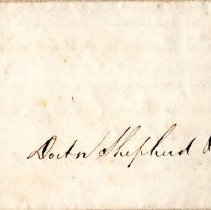 Doctor Shepherd